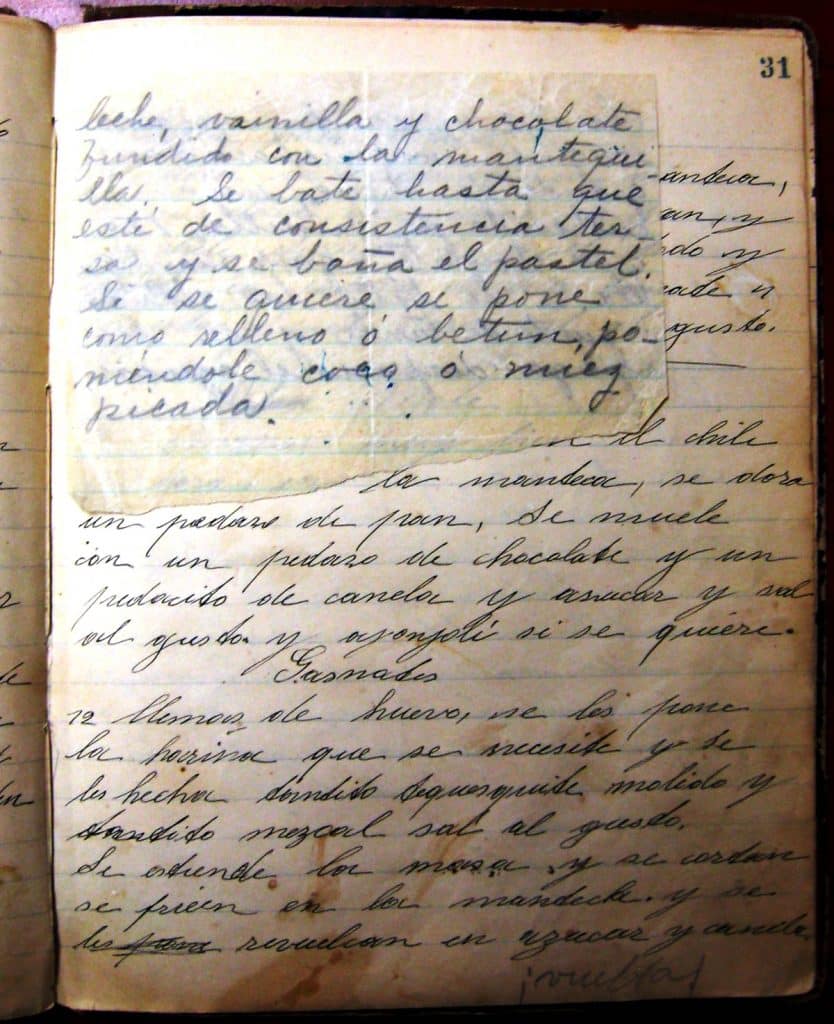 31
leche, vainilla y chocolate
fundido con la mantequi-
lla. Se bate hasta que
esté de consistencia ter-
sa y se baña el pastel.
Si se quiere se pone
como relleno ó betun, po-
niéndole coco ó nuez
picada.
anteca,
an, y
do y
cate y
gusto.
el chile
la manteca, se dora
un pedazo de pan, Se muele
con un pedaso de chocolate y un
pedacito de canela y asucar y sal
al gusto y ajonjolí si se quiere.
Gasnates
12 llemas de huevo, se les pone
la harina que se necesite y se
les hecha tantito tequesquite molido y
tantito mezcal sal al gusto.
Se estiende la masa y se cortan
se frien en la manteca. y se
les revuelcan en azucar y canela.
¡vuelta!